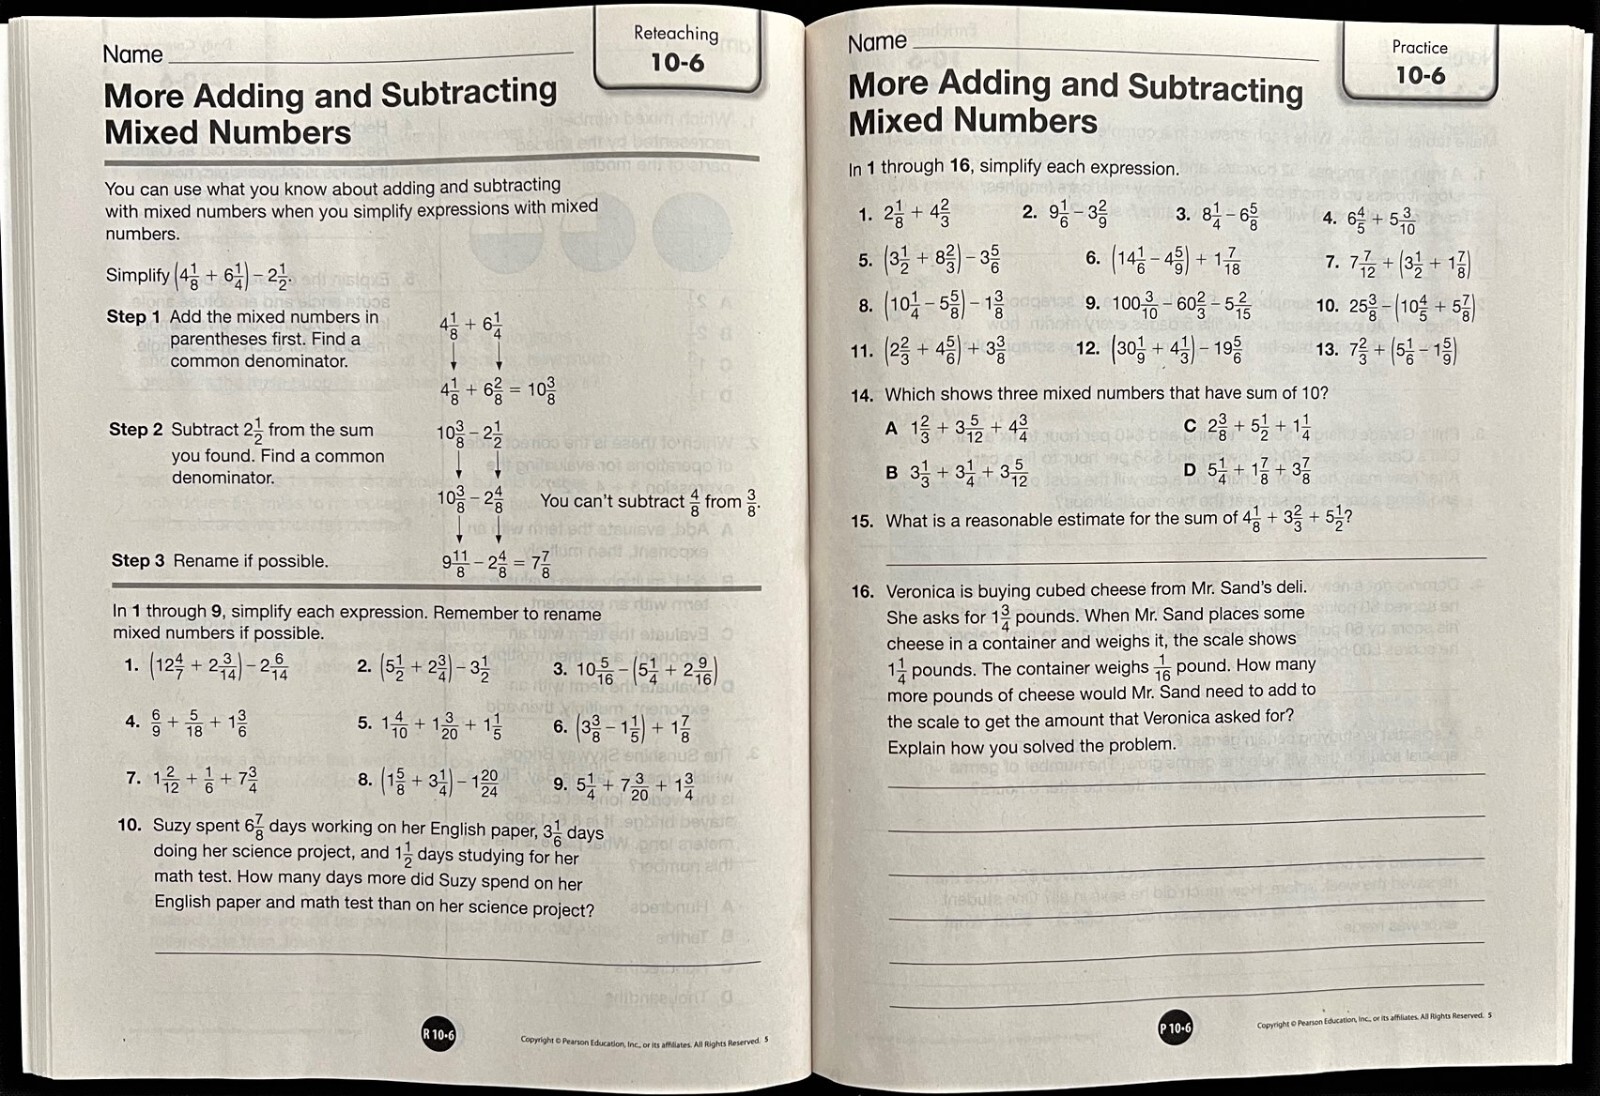 Name
Reteaching
10-6
More Adding and Subtracting
Mixed Numbers
You can use what you know about adding and subtracting
with mixed numbers when you simplify expressions with mixed
numbers.
Simplify (4 1/8 + 6 1/4) − 2 1/2.
Step 1 Add the mixed numbers in
parentheses first. Find a
common denominator.
4 1/8 + 6 1/4
4 1/8 + 6 2/8 = 10 3/8
Step 2 Subtract 2 1/2 from the sum
you found. Find a common
denominator.
10 3/8 − 2 1/2
10 3/8 − 2 4/8 You can't subtract 4/8 from 3/8.
Step 3 Rename if possible.
9 11/8 − 2 4/8 = 7 7/8
In 1 through 9, simplify each expression. Remember to rename
mixed numbers if possible.
1. (12 4/7 + 2 3/14) − 2 6/14 2. (5 1/2 + 2 3/4) − 3 1/2 3. 10 5/16 − (5 1/4 + 2 9/16)
4. 6/9 + 5/18 + 1 3/6 5. 1 4/10 + 1 3/20 + 1 1/5 6. (3 3/8 − 1 1/5) + 1 7/8
7. 1 2/12 + 1/6 + 7 3/4 8. (1 5/8 + 3 1/4) − 1 20/24 9. 5 1/4 + 7 3/20 + 1 3/4
10. Suzy spent 6 7/8 days working on her English paper, 3 1/6 days
doing her science project, and 1 1/2 days studying for her
math test. How many days more did Suzy spend on her
English paper and math test than on her science project?
R 10•6
Copyright © Pearson Education, Inc., or its affiliates. All Rights Reserved. 5
Name
Practice
10-6
More Adding and Subtracting
Mixed Numbers
In 1 through 16, simplify each expression.
1. 2 1/8 + 4 2/3 2. 9 1/6 − 3 2/9 3. 8 1/4 − 6 5/8 4. 6 4/5 + 5 3/10
5. (3 1/2 + 8 2/3) − 3 5/6 6. (14 1/6 − 4 5/9) + 1 7/18 7. 7 7/12 + (3 1/2 + 1 7/8)
8. (10 1/4 − 5 5/8) − 1 3/8 9. 100 3/10 − 60 2/3 − 5 2/15 10. 25 3/8 − (10 4/5 + 5 7/8)
11. (2 2/3 + 4 5/6) + 3 3/8 12. (30 1/9 + 4 1/3) − 19 5/6 13. 7 2/3 + (5 1/6 − 1 5/9)
14. Which shows three mixed numbers that have sum of 10?
A 1 2/3 + 3 5/12 + 4 3/4 C 2 3/8 + 5 1/2 + 1 1/4
B 3 1/3 + 3 1/4 + 3 5/12 D 5 1/4 + 1 7/8 + 3 7/8
15. What is a reasonable estimate for the sum of 4 1/8 + 3 2/3 + 5 1/2?
16. Veronica is buying cubed cheese from Mr. Sand's deli.
She asks for 1 3/4 pounds. When Mr. Sand places some
cheese in a container and weighs it, the scale shows
1 1/4 pounds. The container weighs 1/16 pound. How many
more pounds of cheese would Mr. Sand need to add to
the scale to get the amount that Veronica asked for?
Explain how you solved the problem.
P 10•6
Copyright © Pearson Education, Inc., or its affiliates. All Rights Reserved. 5